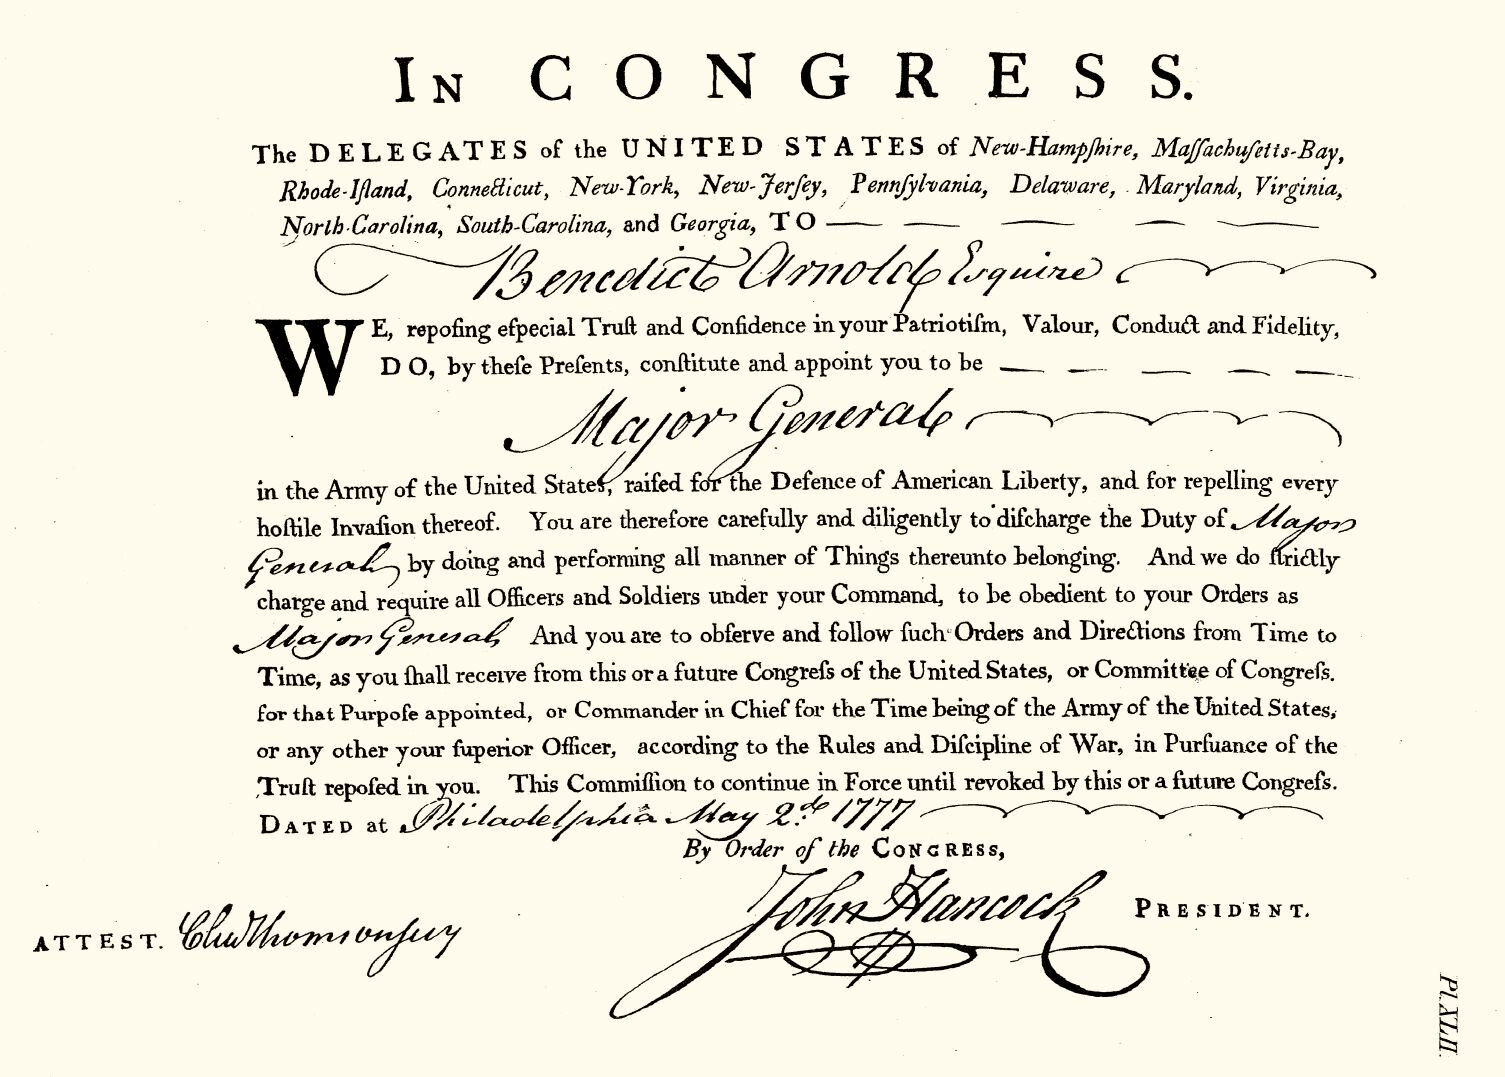 In CONGRESS.
The DELEGATES of the UNITED STATES of New-Hampſhire, Maſſachuſetts-Bay,
Rhode-Iſland, Connecticut, New-York, New-Jerſey, Pennſylvania, Delaware, Maryland, Virginia,
North-Carolina, South-Carolina, and Georgia, TO
Benedict Arnold Esquire
WE, repoſing eſpecial Truſt and Confidence in your Patriotiſm, Valour, Conduct and Fidelity,
DO, by theſe Preſents, conſtitute and appoint you to be
Major General
in the Army of the United States, raiſed for the Defence of American Liberty, and for repelling every
hoſtile Invaſion thereof. You are therefore carefully and diligently to diſcharge the Duty of Major
General by doing and performing all manner of Things thereunto belonging. And we do ſtrictly
charge and require all Officers and Soldiers under your Command, to be obedient to your Orders as
Major General And you are to obſerve and follow ſuch Orders and Directions from Time to
Time, as you ſhall receive from this or a future Congreſs of the United States, or Committee of Congreſs.
for that Purpoſe appointed, or Commander in Chief for the Time being of the Army of the United States,
or any other your ſuperior Officer, according to the Rules and Diſcipline of War, in Purſuance of the
Truſt repoſed in you. This Commiſſion to continue in Force until revoked by this or a future Congreſs.
DATED at Philadelphia May 2.d 1777
By Order of the CONGRESS,
John Hancock PRESIDENT.
ATTEST. Chas Thomson secy
Pl.XLII.